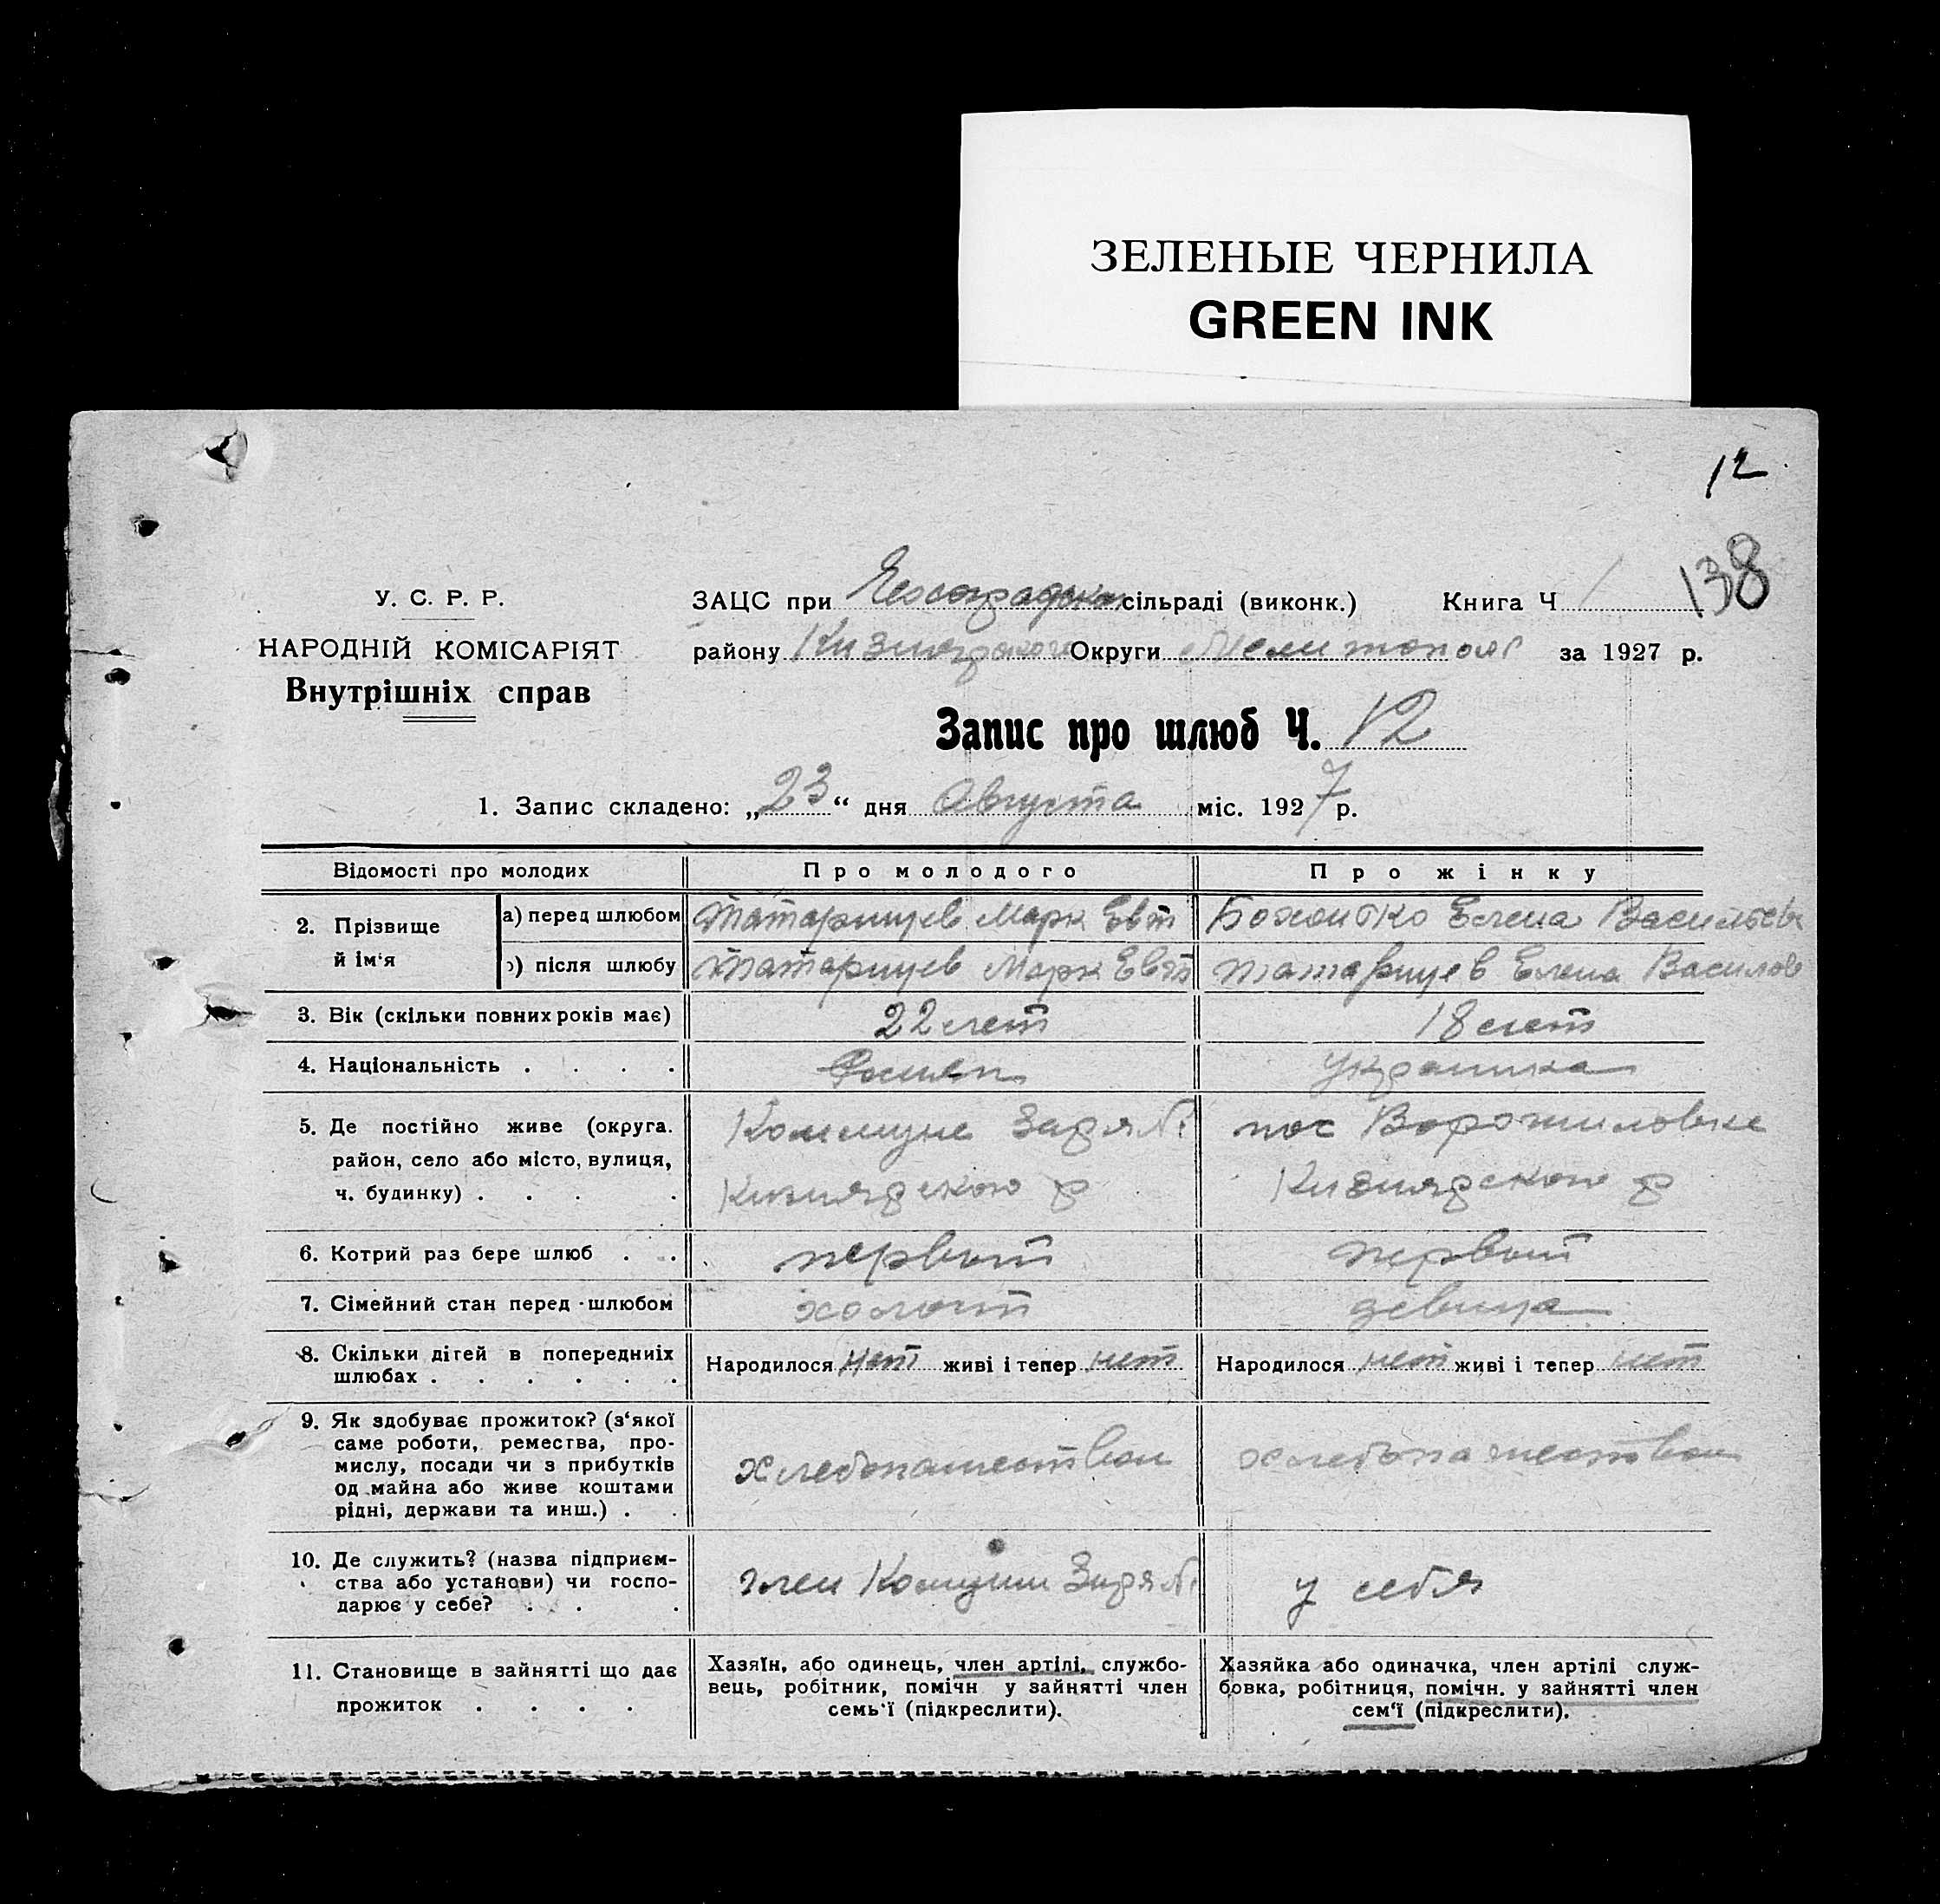 ЗЕЛЕНЫЕ ЧЕРНИЛА
GREEN INK
12
138
У. С. Р. Р.
НАРОДНІЙ КОМІСАРІЯТ
Внутрішніх справ
ЗАЦС при сільраді (виконк.) Книга Ч 1
району Кизиярского Округи Мелитопол за 1927 р.
Запис про шлюб Ч. 12
1. Запис складено: „23“ дня Августа міс. 1927 р.
Відомості про молодих Про молодого Про жінку
2. Прізвище й ім‘я
а) перед шлюбом Татаринцев Марк Евт Елена Василев
б) після шлюбу Татаринцев Марк Евт Татаринцев Елена Василев
3. Вік (скільки повних років має) 22 лет 18 лет
4. Національність . . . . Росиян украинка
5. Де постійно живе (округа. район, село або місто, вулиця, ч. будинку) . . . .
Коммуне Заря №1
Кизиярского р
пос Ворошиловке
Кизиярского р
6. Котрий раз бере шлюб . . . первый первый
7. Сімейний стан перед шлюбом холост девица
8. Скільки дітей в попередниіх шлюбах . . . . . .
Народилося нет живі і тепер нет
Народилося нет живі і тепер нет
9. Як здобуває прожиток? (з‘якої
саме роботи, ремества, про-
мислу, посади чи з прибутків
од майна або живе коштами
рідні, держави та инш.) . .
хлебопашеством
хлебопашеством
10. Де служить? (назва підприєм-
ства або установи) чи госпо-
дарює у себе? . . .
член Комуни Заря №1
у себя
11. Становище в зайнятті що дає
прожиток . . . .
Хазяїн, або одинець, член артілі, службо-
вець, робітник, помічн у зайнятті член
семь‘ї (підкреслити).
Хазяйка або одиначка, член артілі служ-
бовка, робітниця, помічн. у зайнятті член
сем‘ї (підкреслити).